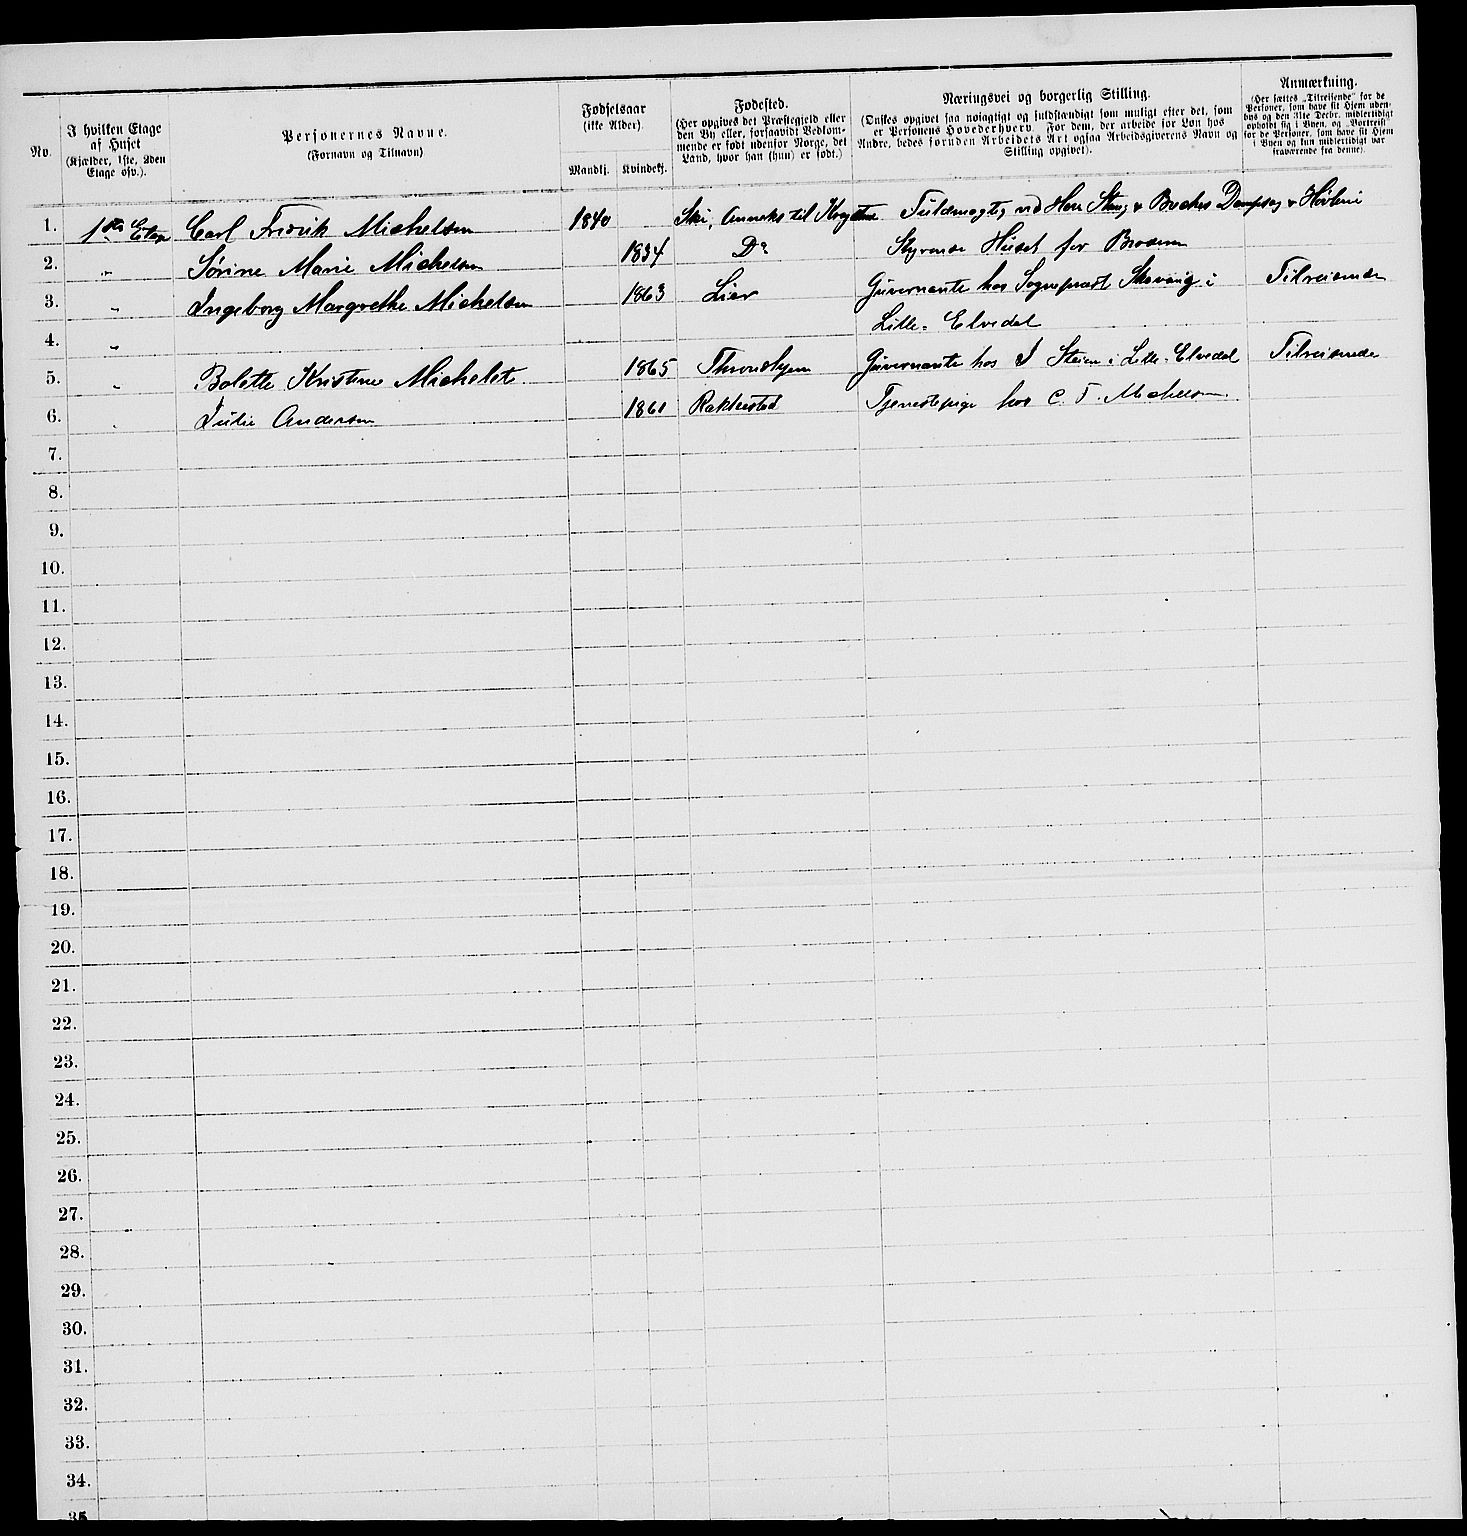 No.
I hvilken Etage af Huset
(Kjælder, 1ste, 2den Etage osv.).
Personernes Navne.
(Fornavn og Tilnavn)
Fødselsaar
(ikke Alder).
Mandkj. Kvindekj.
Fødested.
(Her opgives det Præstegjeld eller
den By eller, forsaavidt Vedkom-
mende er født udenfor Norge, det
Land, hvor han (hun) er født.)
Næringsvei og borgerlig Stilling.
(Ønskes opgivet saa nøiagtigt og fuldstændigt som muligt efter det, som
er Personens Hovederhverv. For dem, der arbeide for Løn hos
Andre, bedes foruden Arbeidets Art ogsaa Arbeidsgiverens Navn og
Stilling opgivet).
Anmærkning.
(Her sættes „Tilreisende" for de
Personer, som have sit Hjem uden-
bys og den 31te Decbr. midlertidigt
opholdt sig i Byen, og „Bortreist"
for de Personer, som have sit Hjem
i Byen og kun midlertidigt var
fraværende fra denne).
1. 1ste Etage Carl Fredrik Michelsen 1840 Ski, Anneks til Fuldmægtig ved Herr & Dampsag & Høvleri
2. " Sørine Marie Michelsen 1834 Do Styrende Huset for Broderen
3. " Ingeborg Margrethe Michelsen 1863 Lier Guvernante hos Sogneprest i Tilreisende
4. " Lille-Elvedal
5. " Bolette Kristine Michelet 1865 Throndhjem Guvernante hos i Lille-Elvedal Tilreisende
6. " Julie Andersen 1861 Rakkestad Tjenestepige hos C. F. Michelsen.
7.
8.
9.
10.
11.
12.
13.
14.
15.
16.
17.
18.
19.
20.
21.
22.
23.
24.
25.
26.
27.
28.
29.
30.
31.
32.
33.
34.
35